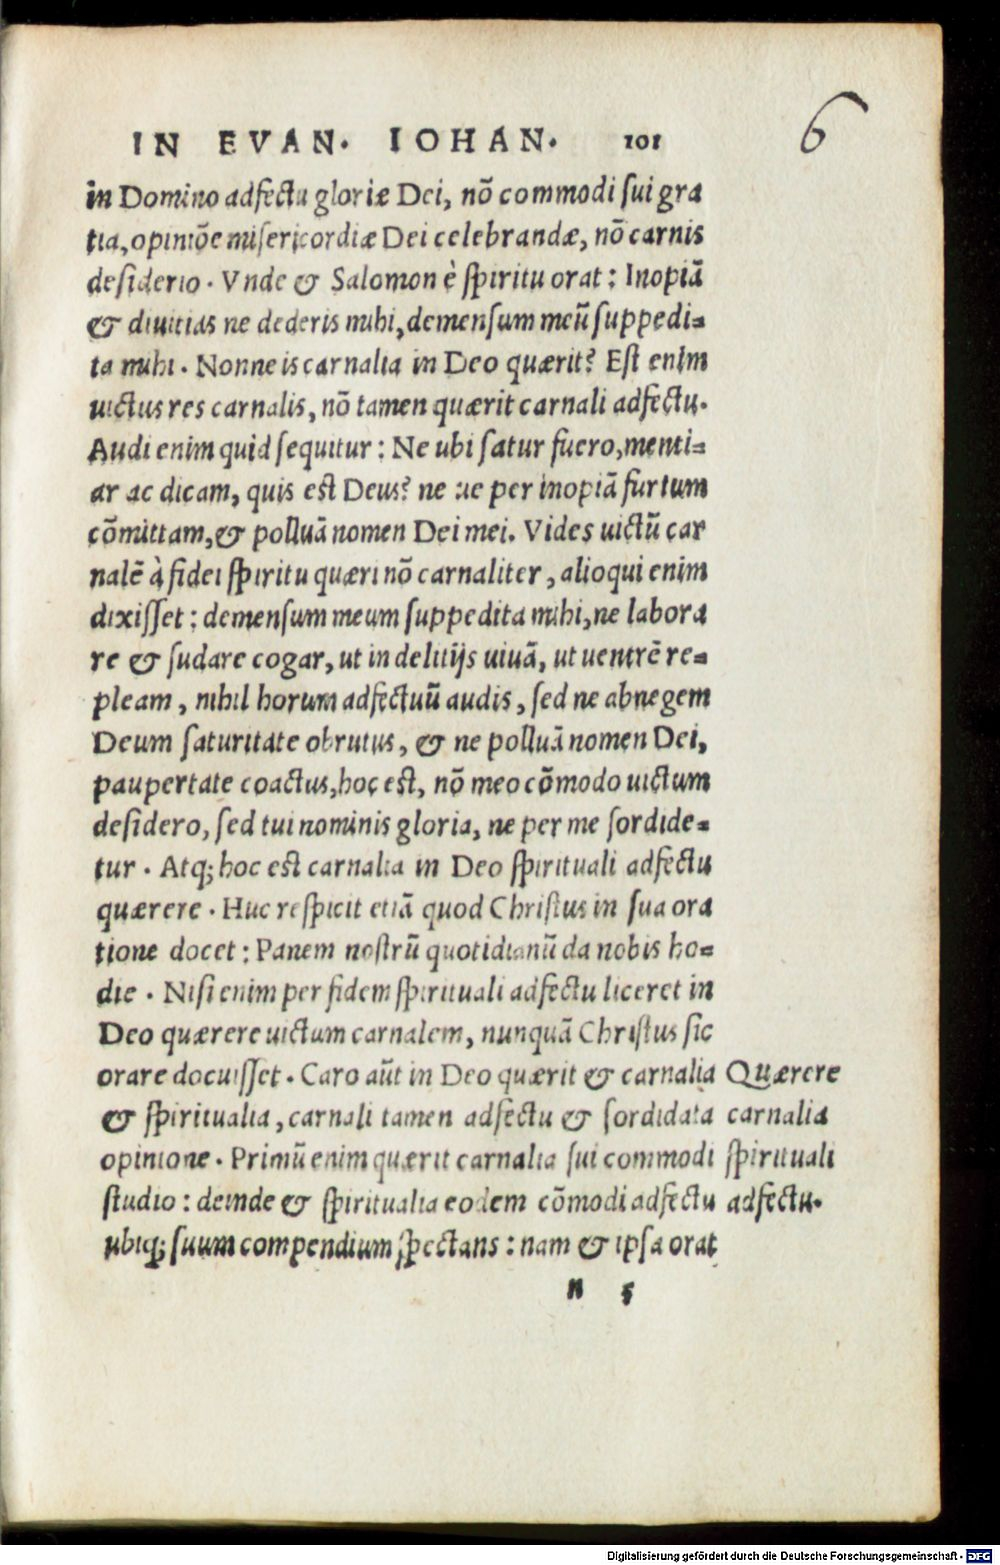 IN EVAN. IOHAN. 101
6
in Domino adfectu gloriæ Dei, nõ commodi sui gra
tia, opiniõe misericordiæ Dei celebrandæ, nõ carnis
desiderio. Vnde & Salomon è spiritu orat: Inopiã
& diuitias ne dederis mihi, demensum meũ suppedi-
ta mihi. Nonne is carnalia in Deo quærit? Est enim
uictus res carnalis, nõ tamen quærit carnali adfectu.
Audi enim quid sequitur: Ne ubi satur fuero, menti-
ar ac dicam, quis est Deus? ne ue per inopiã furtum
cõmittam, & polluã nomen Dei mei. Vides uictũ car
nalẽ à fidei spiritu quæri nõ carnaliter, alioqui enim
dixisset: demensum meum suppedita mihi, ne labora
re & sudare cogar, ut in delitijs uiuã, ut uentrẽ re-
pleam, nihil horum adfectuũ audis, sed ne abnegem
Deum saturitate obrutus, & ne polluã nomen Dei,
paupertate coactus, hoc est, nõ meo cõmodo uictum
desidero, sed tui nominis gloria, ne per me sordide-
tur. Atq; hoc est carnalia in Deo spirituali adfectu
quærere. Huc respicit etiã quod Christus in sua ora
tione docet: Panem nostrũ quotidianũ da nobis ho-
die. Nisi enim per fidem spirituali adfectu liceret in
Deo quærere uictum carnalem, nunquã Christus sic
orare docuisset. Caro aũt in Deo quærit & carnalia
& spiritualia, carnali tamen adfectu & sordidata
opinione. Primũ enim quærit carnalia sui commodi
studio: deinde & spiritualia eodem cõmodi adfectu
ubiq; suum compendium spectans: nam & ipsa orat
Quærere
carnalia
spirituali
adfectu.
n 5
Digitalisierung gefördert durch die Deutsche Forschungsgemeinschaft - DFG